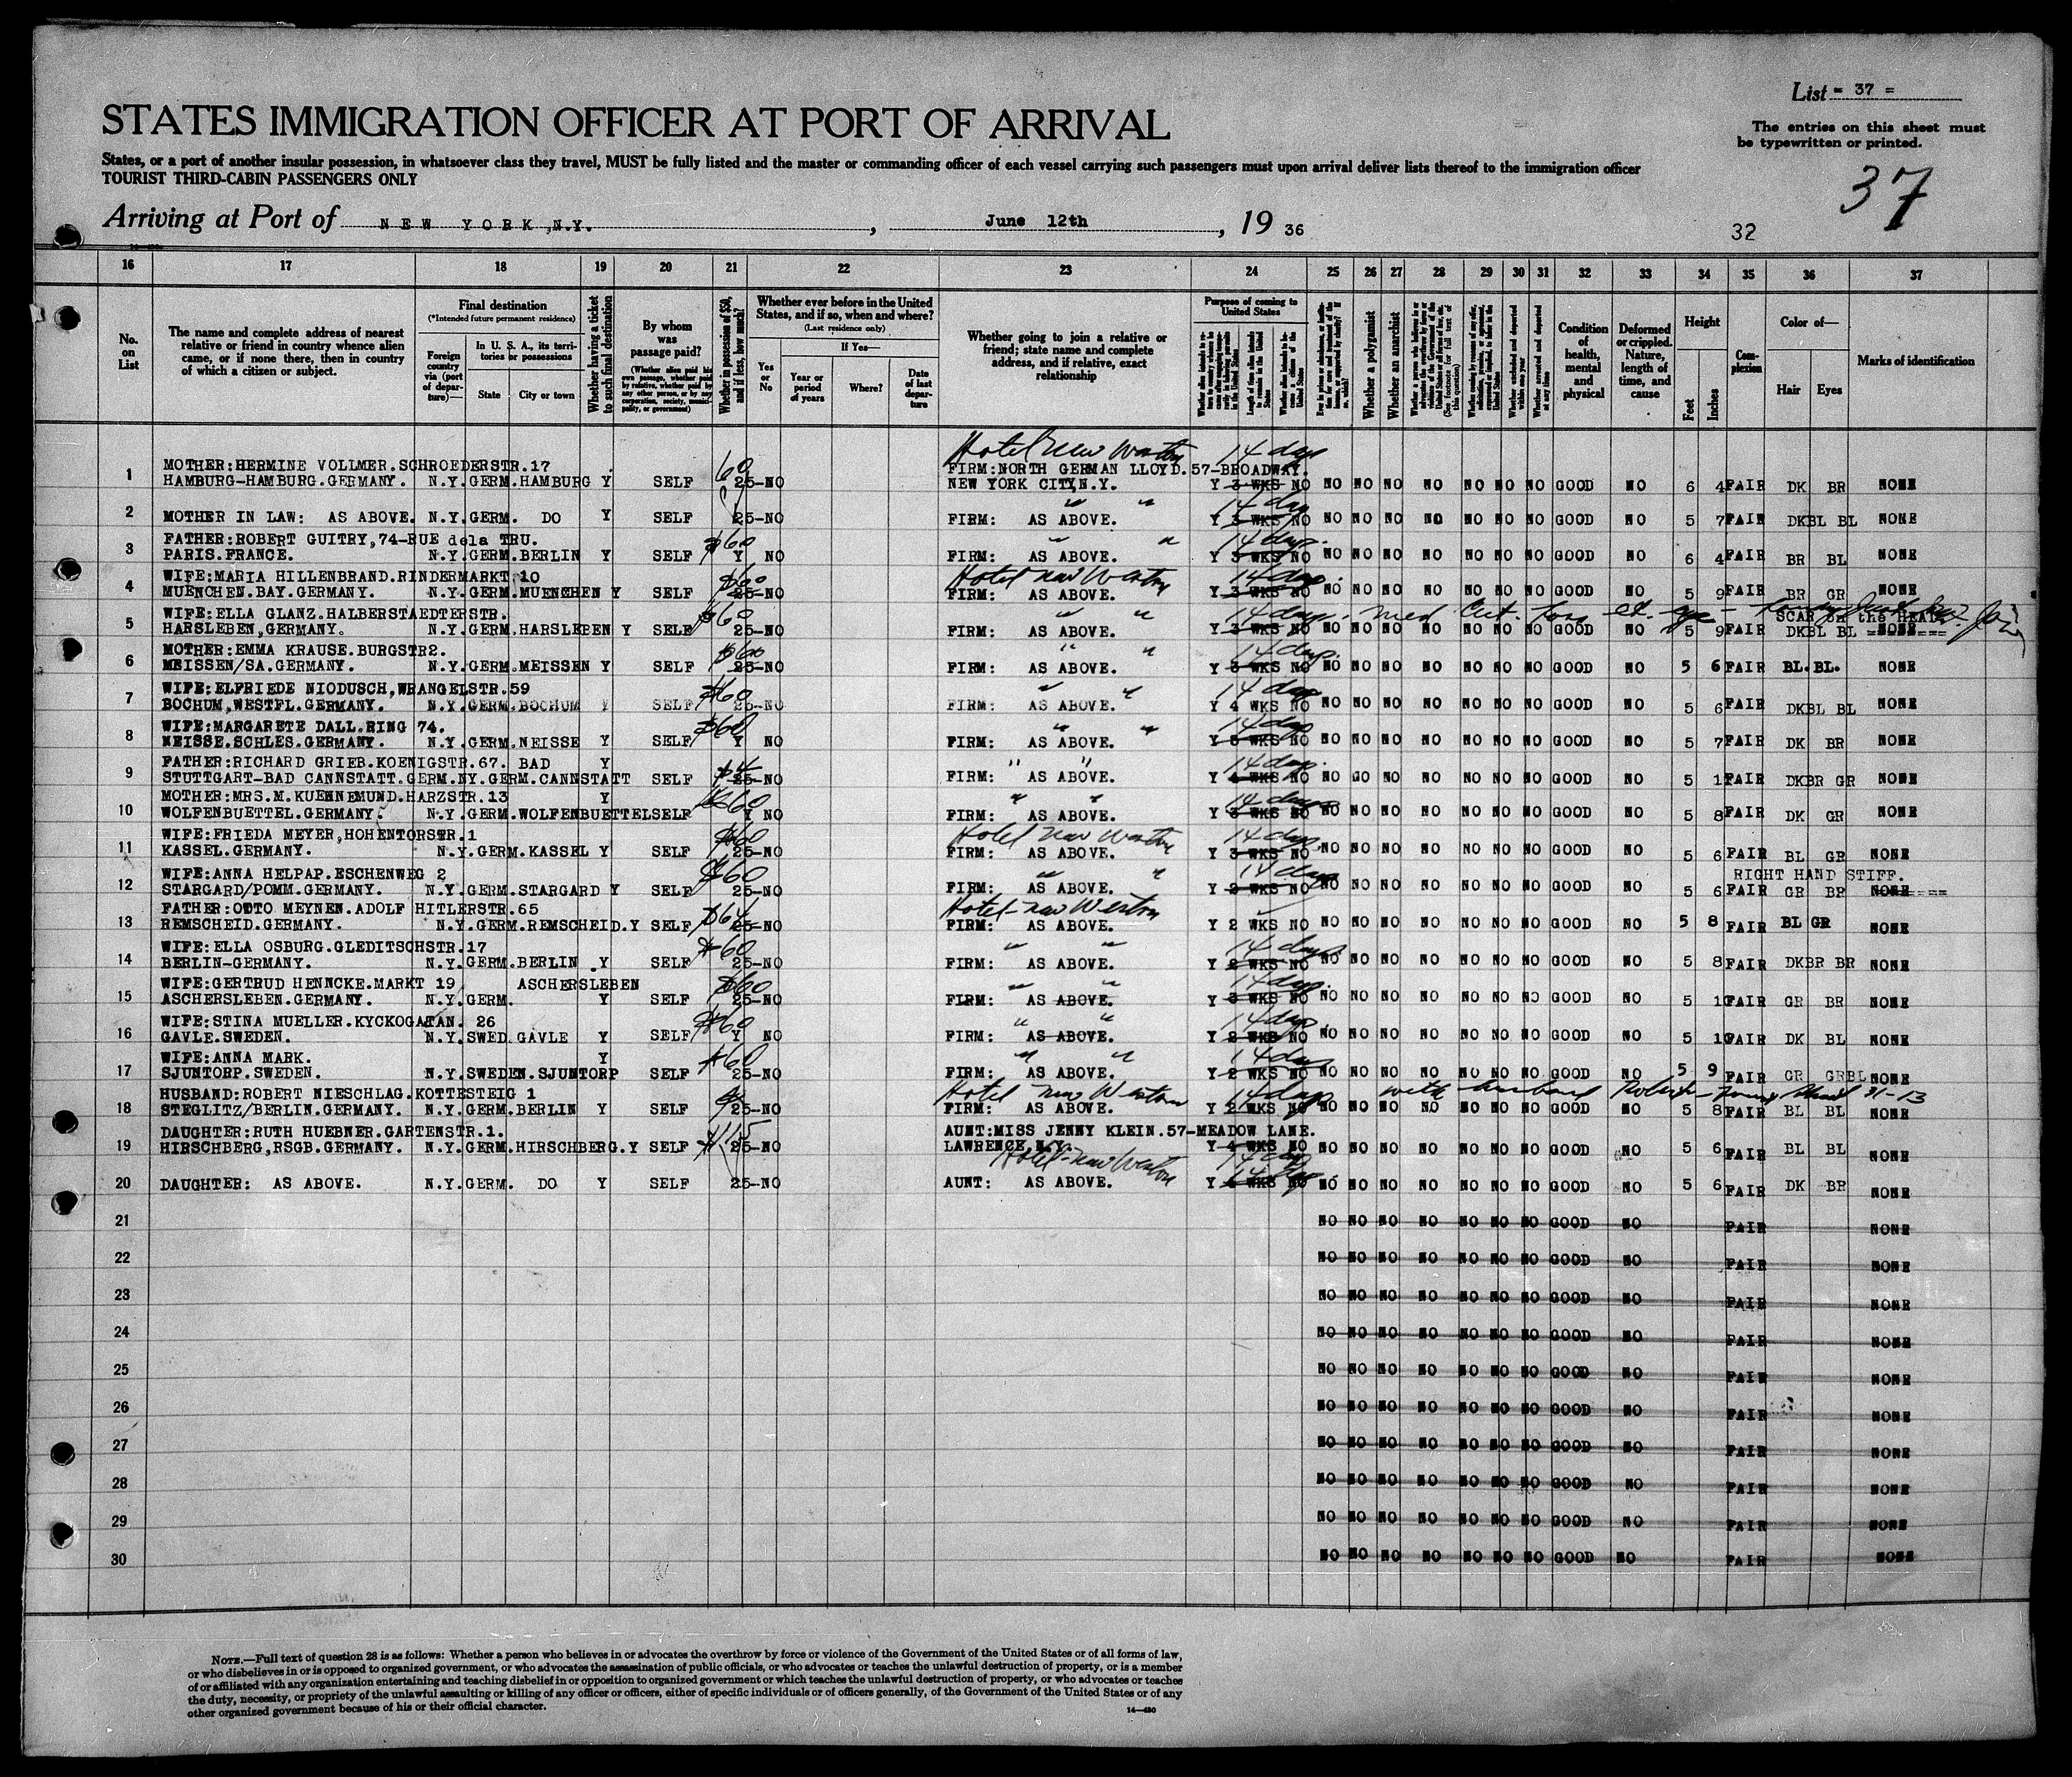 List = 37 =
STATES IMMIGRATION OFFICER AT PORT OF ARRIVAL
The entries on this sheet must
be typewritten or printed.
States, or a port of another insular possession, in whatsoever class they travel, MUST be fully listed and the master or commanding officer of each vessel carrying such passengers must upon arrival deliver lists thereof to the immigration officer
TOURIST THIRD-CABIN PASSENGERS ONLY
37
Arriving at Port of NEW YORK, N.Y., June 12th, 19 36
32
16 17 18 19 20 21 22 23 24 25 26 27 28 29 30 31 32 33 34 35 36 37
No. on List
The name and complete address of nearest relative or friend in country whence alien came, or if none there, then in country of which a citizen or subject.
Final destination
(*Intended future permanent residence)
Foreign country via (port of departure)—
In U. S. A., its territories or possessions
State
City or town
Whether having a ticket to such final destination
By whom was passage paid?
(Whether alien paid his own passage, whether paid by relative, whether paid by any other person, or by any corporation, society, municipality, or government)
Whether in possession of $50, and if less, how much?
Whether ever before in the United States, and if so, when and where?
(Last residence only)
Yes or No
If Yes—
Year or period of years
Where?
Date of last departure
Whether going to join a relative or friend; state name and complete address, and if relative, exact relationship
Purpose of coming to United States
Whether a polygamist
Whether an anarchist
Condition of health, mental and physical
Deformed or crippled. Nature, length of time, and cause
Height
Feet
Inches
Complexion
Color of—
Hair
Eyes
Marks of identification
14 days
1 MOTHER:HERMINE VOLLMER.SCHROEDERSTR.17 60 FIRM:NORTH GERMAN LLOYD.57-BROADWAY.
HAMBURG-HAMBURG.GERMANY. N.Y.GERM.HAMBURG Y SELF 25-NO NEW YORK CITY,N.Y. Y 3 WKS NO NO NO NO NO NO NO NO GOOD NO 6 4 FAIR DK BR NONE
2 MOTHER IN LAW: AS ABOVE. N.Y.GERM. DO Y SELF 25-NO FIRM: AS ABOVE. Y 3 WKS NO NO NO NO NO NO NO NO GOOD NO 5 7 FAIR DKBL BL NONE
3 FATHER:ROBERT GUITRY,74-RUE dela TRU. $60 14 days.
PARIS.FRANCE. N.Y.GERM.BERLIN Y SELF Y NO FIRM: AS ABOVE. Y 3 WKS NO NO NO NO NO NO NO NO GOOD NO 6 4 FAIR BR BL NONE
4 WIFE:MARIA HILLENBRAND.RINDERMARKT 10 Hotel New Weston 14 days.
MUENCHEN.BAY.GERMANY. N.Y.GERM.MUENCHEN Y SELF 25-NO FIRM: AS ABOVE. Y 3 WKS NO NO NO NO NO NO NO NO GOOD NO 5 9 FAIR BR GR NONE
5 WIFE:ELLA GLANZ.HALBERSTAEDTERSTR. $60 14 days. Med Cert. SCAR on the HEAD.
HARSLEBEN,GERMANY. N.Y.GERM.HARSLEBEN Y SELF 25-NO FIRM: AS ABOVE. Y 3 WKS NO NO NO NO NO NO NO NO GOOD NO 5 9 FAIR DKBL BL NONE
6 MOTHER:EMMA KRAUSE.BURGSTR2. $60 14 days.
MEISSEN/SA.GERMANY. N.Y.GERM.MEISSEN Y SELF 25-NO FIRM: AS ABOVE. Y 3 WKS NO NO NO NO NO NO NO NO GOOD NO 5 6 FAIR BL.BL. NONE
7 WIFE:ELFRIEDE NIODUSCH,WRANGELSTR.59 $60 14 days
BOCHUM,WESTFL.GERMANY. N.Y.GERM.BOCHUM Y SELF 25-NO FIRM: AS ABOVE. Y 4 WKS NO NO NO NO NO NO NO NO GOOD NO 5 6 FAIR DKBL BL NONE
8 WIFE:MARGARETE DALL.RING 74. $60 14 days
NEISSE.SCHLES.GERMANY. N.Y.GERM.NEISSE Y SELF Y NO FIRM: AS ABOVE. Y 3 WKS NO NO NO NO NO NO NO NO GOOD NO 5 7 FAIR DK BR NONE
9 FATHER:RICHARD GRIEB.KOENIGSTR.67. BAD Y 14 days.
STUTTGART-BAD CANNSTATT.GERM.NY.GERM.CANNSTATT SELF 25-NO FIRM: AS ABOVE. Y 4 WKS NO NO GO NO NO NO NO NO GOOD NO 5 1 FAIR DKBR GR NONE
10 MOTHER:MRS.M.KUENNEMUND.HARZSTR.13 Y $60 14 days
WOLFENBUETTEL.GERMANY. N.Y.GERM.WOLFENBUETTELSELF Y NO FIRM: AS ABOVE. Y 3 WKS NO NO NO NO NO NO NO NO GOOD NO 5 8 FAIR DK GR NONE
11 WIFE:FRIEDA MEYER,HOHENTORSTR.1 $60 Hotel New Weston 14 days
KASSEL.GERMANY. N.Y.GERM.KASSEL Y SELF 25-NO FIRM: AS ABOVE. Y 3 WKS NO NO NO NO NO NO NO NO GOOD NO 5 6 FAIR BL GR NONE
12 WIFE:ANNA HELPAP.ESCHENWEG 2 $60 14 days RIGHT HAND STIFF.
STARGARD/POMM.GERMANY. N.Y.GERM.STARGARD Y SELF 25-NO FIRM: AS ABOVE. Y 2 WKS NO NO NO NO NO NO NO NO GOOD NO 5 6 FAIR GR BR NONE
13 FATHER:OTTO MEYNEN.ADOLF HITLERSTR.65 $64 Hotel-New Weston
REMSCHEID.GERMANY. N.Y.GERM.REMSCHEID.Y SELF 25-NO FIRM: AS ABOVE. Y 2 WKS NO NO NO NO NO NO NO NO GOOD NO 5 8 FAIR BL GR NONE
14 WIFE:ELLA OSBURG.GLEDITSCHSTR.17 $60 14 days
BERLIN-GERMANY. N.Y.GERM.BERLIN Y SELF 25-NO FIRM: AS ABOVE. Y 2 WKS NO NO NO NO NO NO NO NO GOOD NO 5 8 FAIR DKBR BR NONE
15 WIFE:GERTRUD HENNCKE.MARKT 19 ASCHERSLEBEN $60 14 days.
ASCHERSLEBEN.GERMANY. N.Y.GERM. Y SELF 25-NO FIRM: AS ABOVE. Y 3 WKS NO NO NO NO NO NO NO NO GOOD NO 5 10 FAIR GR BR NONE
16 WIFE:STINA MUELLER.KYCKOGATAN. 26 $60 14 days
GAVLE.SWEDEN. N.Y.SWED.GAVLE Y SELF Y NO FIRM: AS ABOVE. Y 2 WKS NO NO NO NO NO NO NO NO GOOD NO 5 10 FAIR DK BL NONE
17 WIFE:ANNA MARK. Y $60 14 days
SJUNTORP.SWEDEN. N.Y.SWEDEN.SJUNTORP SELF 25-NO FIRM: AS ABOVE. Y 2 WKS NO NO NO NO NO NO NO NO GOOD NO 5 9 FAIR GR GRBL NONE
18 HUSBAND:ROBERT NIESCHLAG.KOTTESTEIG 1 Hotel New Weston 14 days with husband Robert
STEGLITZ/BERLIN.GERMANY. N.Y.GERM.BERLIN Y SELF 25-NO FIRM: AS ABOVE. Y 2 WKS NO NO NO NO NO NO NO NO GOOD NO 5 8 FAIR BL BL NONE
19 DAUGHTER:RUTH HUEBNER.GARTENSTR.1. AUNT:MISS JENNY KLEIN.57-MEADOW LANE.
HIRSCHBERG,RSGB.GERMANY. N.Y.GERM.HIRSCHBERG.Y SELF 25-NO LAWRENCE,N.Y. Y 4 WKS NO NO NO NO NO NO NO NO GOOD NO 5 6 FAIR BL BL NONE
Hotel-New Weston 14 days
20 DAUGHTER: AS ABOVE. N.Y.GERM. DO Y SELF 25-NO AUNT: AS ABOVE. Y WKS NO NO NO NO NO NO NO NO GOOD NO 5 6 FAIR DK BR NONE
21 NO NO NO NO NO NO NO GOOD NO FAIR NONE
22 NO NO NO NO NO NO NO GOOD NO FAIR NONE
23 NO NO NO NO NO NO NO GOOD NO FAIR NONE
24 NO NO NO NO NO NO NO GOOD NO FAIR NONE
25 NO NO NO NO NO NO NO GOOD NO FAIR NONE
26 NO NO NO NO NO NO NO GOOD NO FAIR NONE
27 NO NO NO NO NO NO NO GOOD NO FAIR NONE
28 NO NO NO NO NO NO NO GOOD NO FAIR NONE
29 NO NO NO NO NO NO NO GOOD NO FAIR NONE
30 NO NO NO NO NO NO NO GOOD NO FAIR NONE
NOTE.—Full text of question 28 is as follows: Whether a person who believes in or advocates the overthrow by force or violence of the Government of the United States or of all forms of law,
or who disbelieves in or is opposed to organized government, or who advocates the assassination of public officials, or who advocates or teaches the unlawful destruction of property, or is a member
of or affiliated with any organization entertaining and teaching disbelief in or opposition to organized government or which teaches the unlawful destruction of property, or who advocates or teaches
the duty, necessity, or propriety of the unlawful assaulting or killing of any officer or officers, either of specific individuals or of officers generally, of the Government of the United States or of any
other organized government because of his or their official character.
14—430